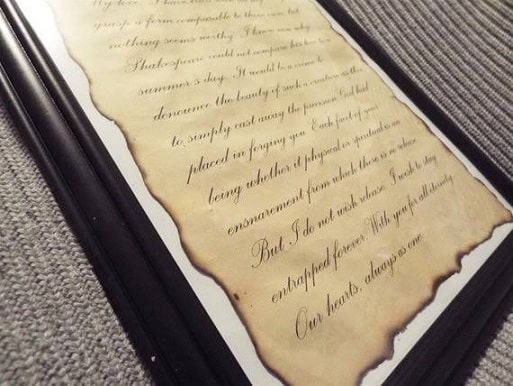 My love, I have
grasp a form comparable to thine own, but
nothing seems worthy. I know now why
Shakespeare could not compare his love to a
summer's day. It would be a crime to
denounce the beauty of such a creature as thee
to simply cast away the precision God had
placed in forging you. Each facet of your
being whether it physical or spiritual is an
ensnarement from which there is no release
But I do not wish release. I wish to stay
entrapped forever. With you for all eternity.
Our hearts, always as one.